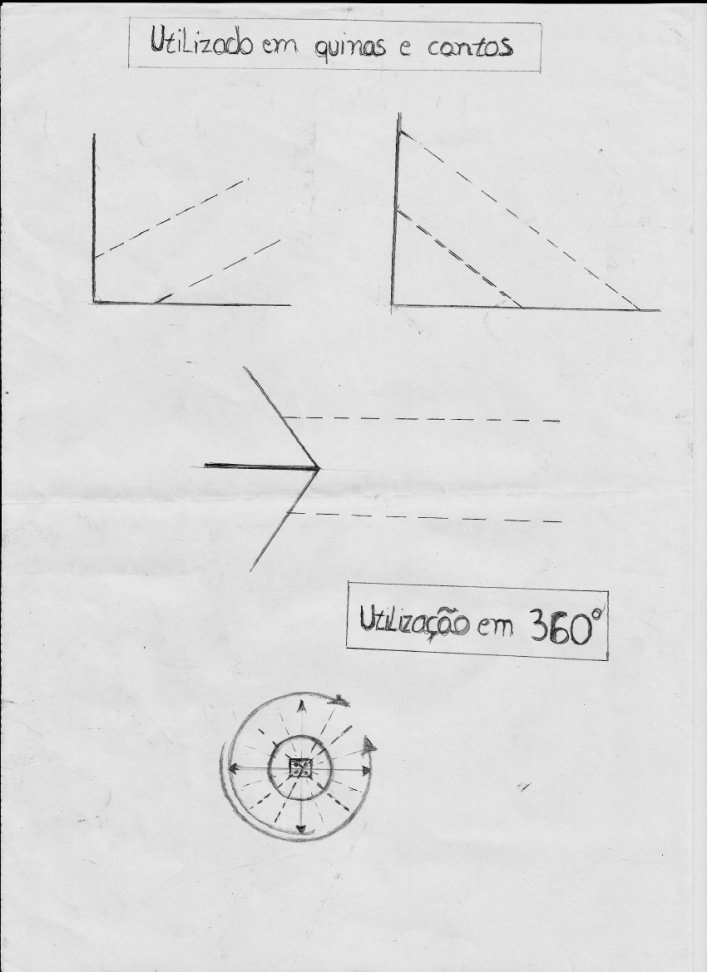 Utilizado em quinas e cantos
Utilização em 360°